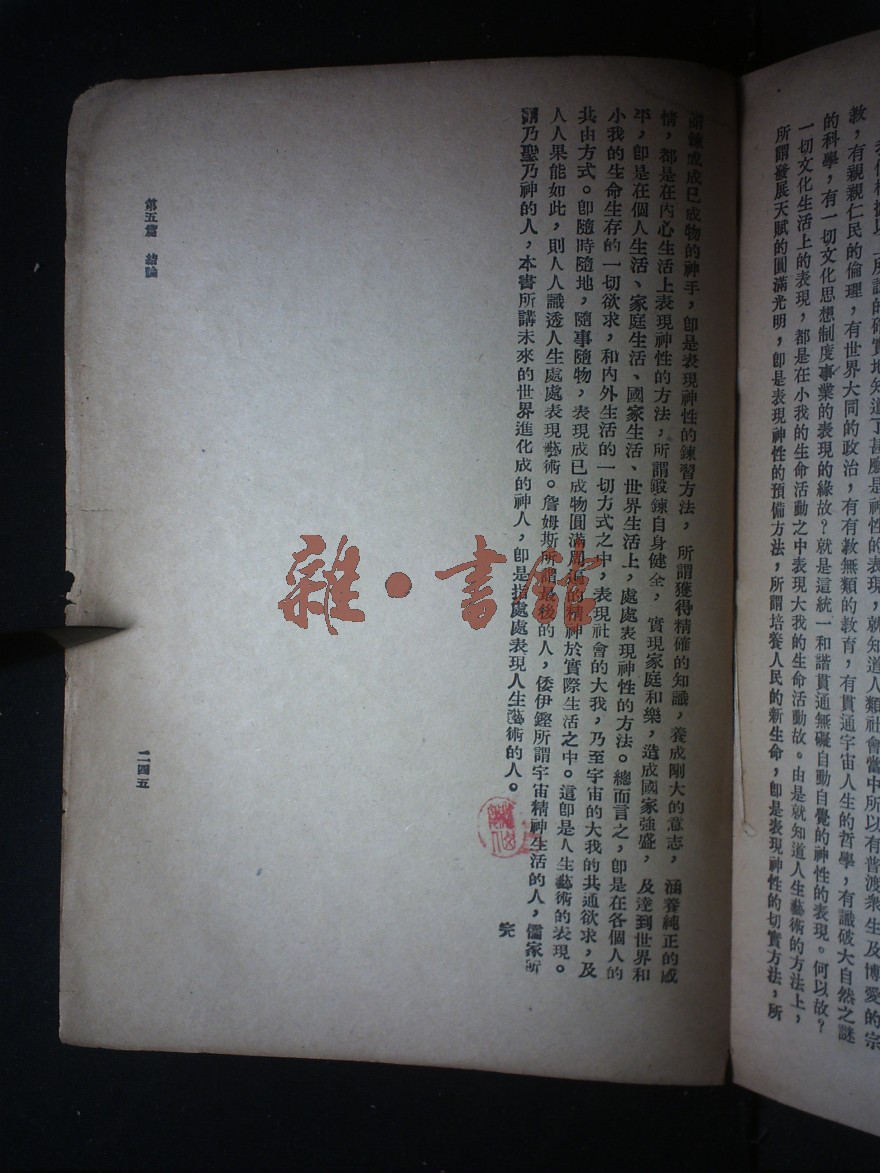 我們根據以上所說的確實地知道了甚麼是神性的表現,就知道人類社會當中所以有普渡衆生及博愛的宗
教,有親親仁民的倫理,有世界大同的政治,有有教無類的教育,有貫通宇宙人生的哲學,有識破大自然之謎
的科學,有一切文化思想制度事業的表現的緣故?就是這統一和諧貫通無礙自動自覺的神性的表現。何以故?
一切文化生活上的表現,都是在小我的生命活動之中表現大我的生命活動故。由是就知道人生藝術的方法上,
所謂發展天賦的圓滿光明,卽是表現神性的預備方法,所謂培養人民的新生命,卽是表現神性的切實方法,所
謂鍊成成已成物的神手,卽是表現神性的鍊習方法,所謂獲得精確的知識,養成剛大的意志,涵養純正的感
情,都是在內心生活上表現神性的方法,所謂鍛鍊自身健全,實現家庭和樂,造成國家強盛,及達到世界和
平,卽是在個人生活、家庭生活、國家生活、世界生活上,處處表現神性的方法。總而言之,卽是在各個人的
小我的生命生存的一切欲求,和內外生活的一切方式之中,表現社會的大我,乃至宇宙的大我的共通欲求,及
共由方式。卽隨時隨地,隨事隨物,表現成已成物圓滿周遍的精神於實際生活之中。這卽是人生藝術的表現。
人人果能如此,則人人識透人生處處表現藝術。詹姆斯所謂最後的人,倭伊鏗所謂宇宙精神生活的人,儒家所
謂乃聖乃神的人,本書所講未來的世界進化成的神人,卽是指處處表現人生藝術的人。
完
第五篇 結論
二四五
雜·書館